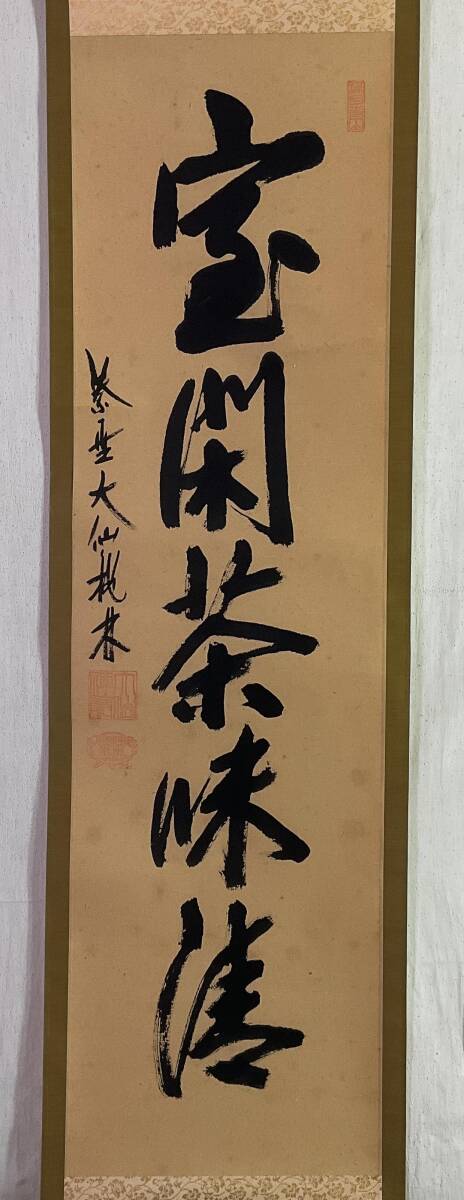 室閑茶味清
紫野大仙桃林